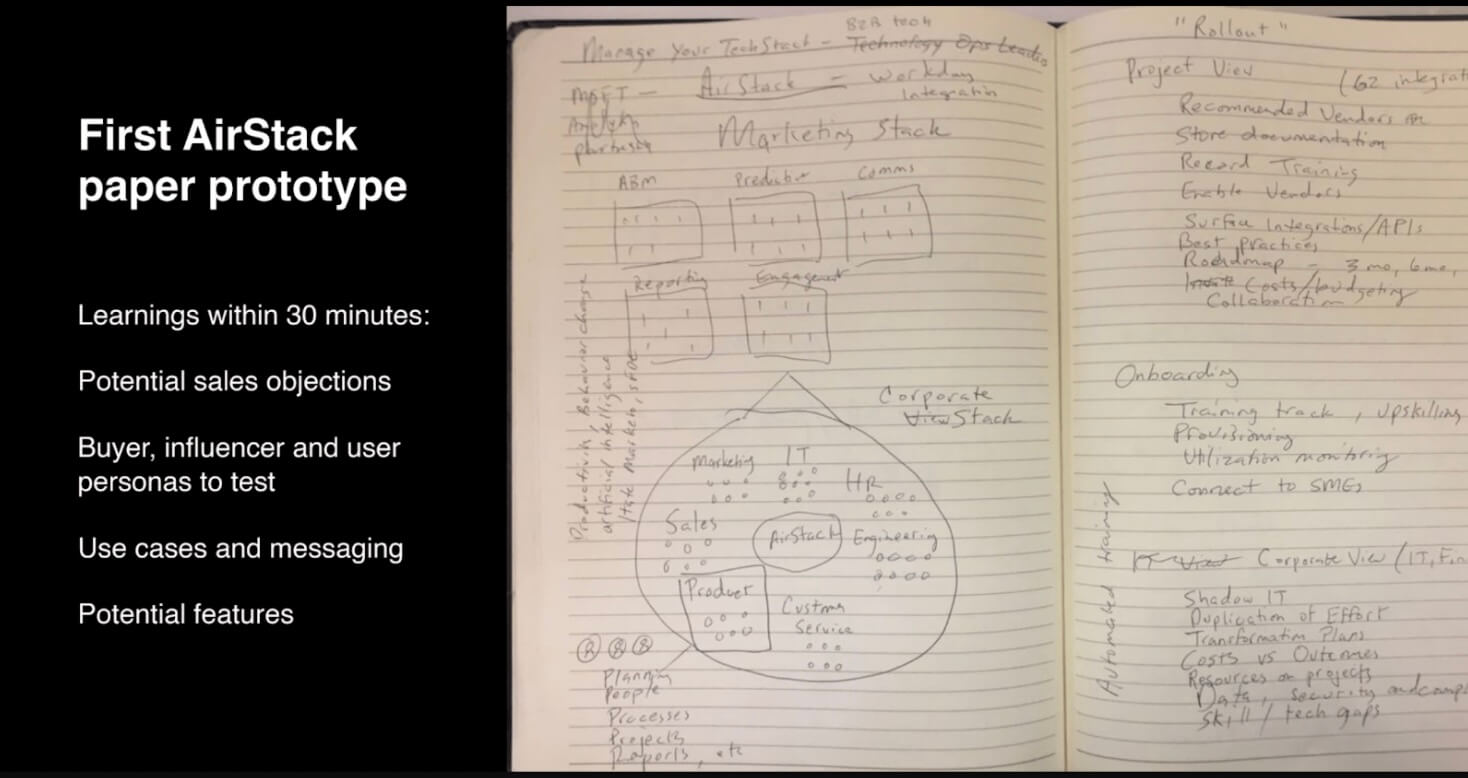 First AirStack
paper prototype
Learnings within 30 minutes:
Potential sales objections
Buyer, influencer and user
personas to test
Use cases and messaging
Potential features
B2B tech
Manage Your TechStack - Technology Ops Leads
MSFT - AirStack = Workday
Integration
Marketing Stack
ABM Predictive Comms
Reporting Engagement
Productivity, Behavior change
artificial intelligence
Corporate
View Stack
Marketing IT
HR
Sales
AirStack Engineering
Product
Customer
Service
Planning
People
Processes
Projects
Reports, etc
"Rollout"
Project View (G2 integrat
Recommended Vendors
Store documentation
Record Training
Enable Vendors
Surface Integrations/APIs
Best practices
Roadmap - 3 mo, 6 mo,
Costs/budgeting
Collaboration
Onboarding
Training track, upskilling
Provisioning
Utilization monitoring
Connect to SMEs
Automated training
IT View Corporate View (IT, Fin
Shadow IT
Duplication of Effort
Transformation Plans
Costs vs Outcomes
Resources on projects
Data, security and comp
Skill / tech gaps